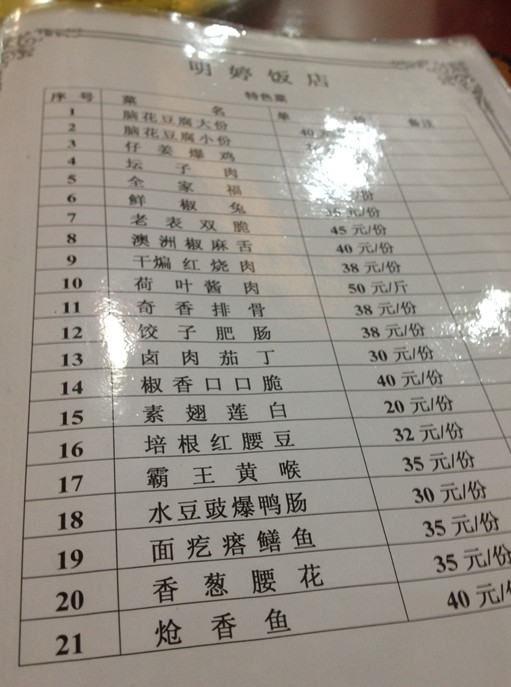 明婷饭店
特色菜
序号 菜名 单 备注
1 脑花豆腐大份 40
2 脑花豆腐小份
3 仔姜爆鸡
4 坛子肉
5 全家福 /份
6 鲜椒兔 35元/份
7 老表双脆 45元/份
8 澳洲椒麻舌 40元/份
9 干煸红烧肉 38元/份
10 荷叶酱肉 50元/斤
11 奇香排骨 38元/份
12 饺子肥肠 38元/份
13 卤肉茄丁 30元/份
14 椒香口口脆 40元/份
15 素翅莲白 20元/份
16 培根红腰豆 32元/份
17 霸王黄喉 35元/份
18 水豆豉爆鸭肠 30元/份
19 面疙瘩鳝鱼 35元/份
20 香葱腰花 35元/份
21 炝香鱼 40元/份